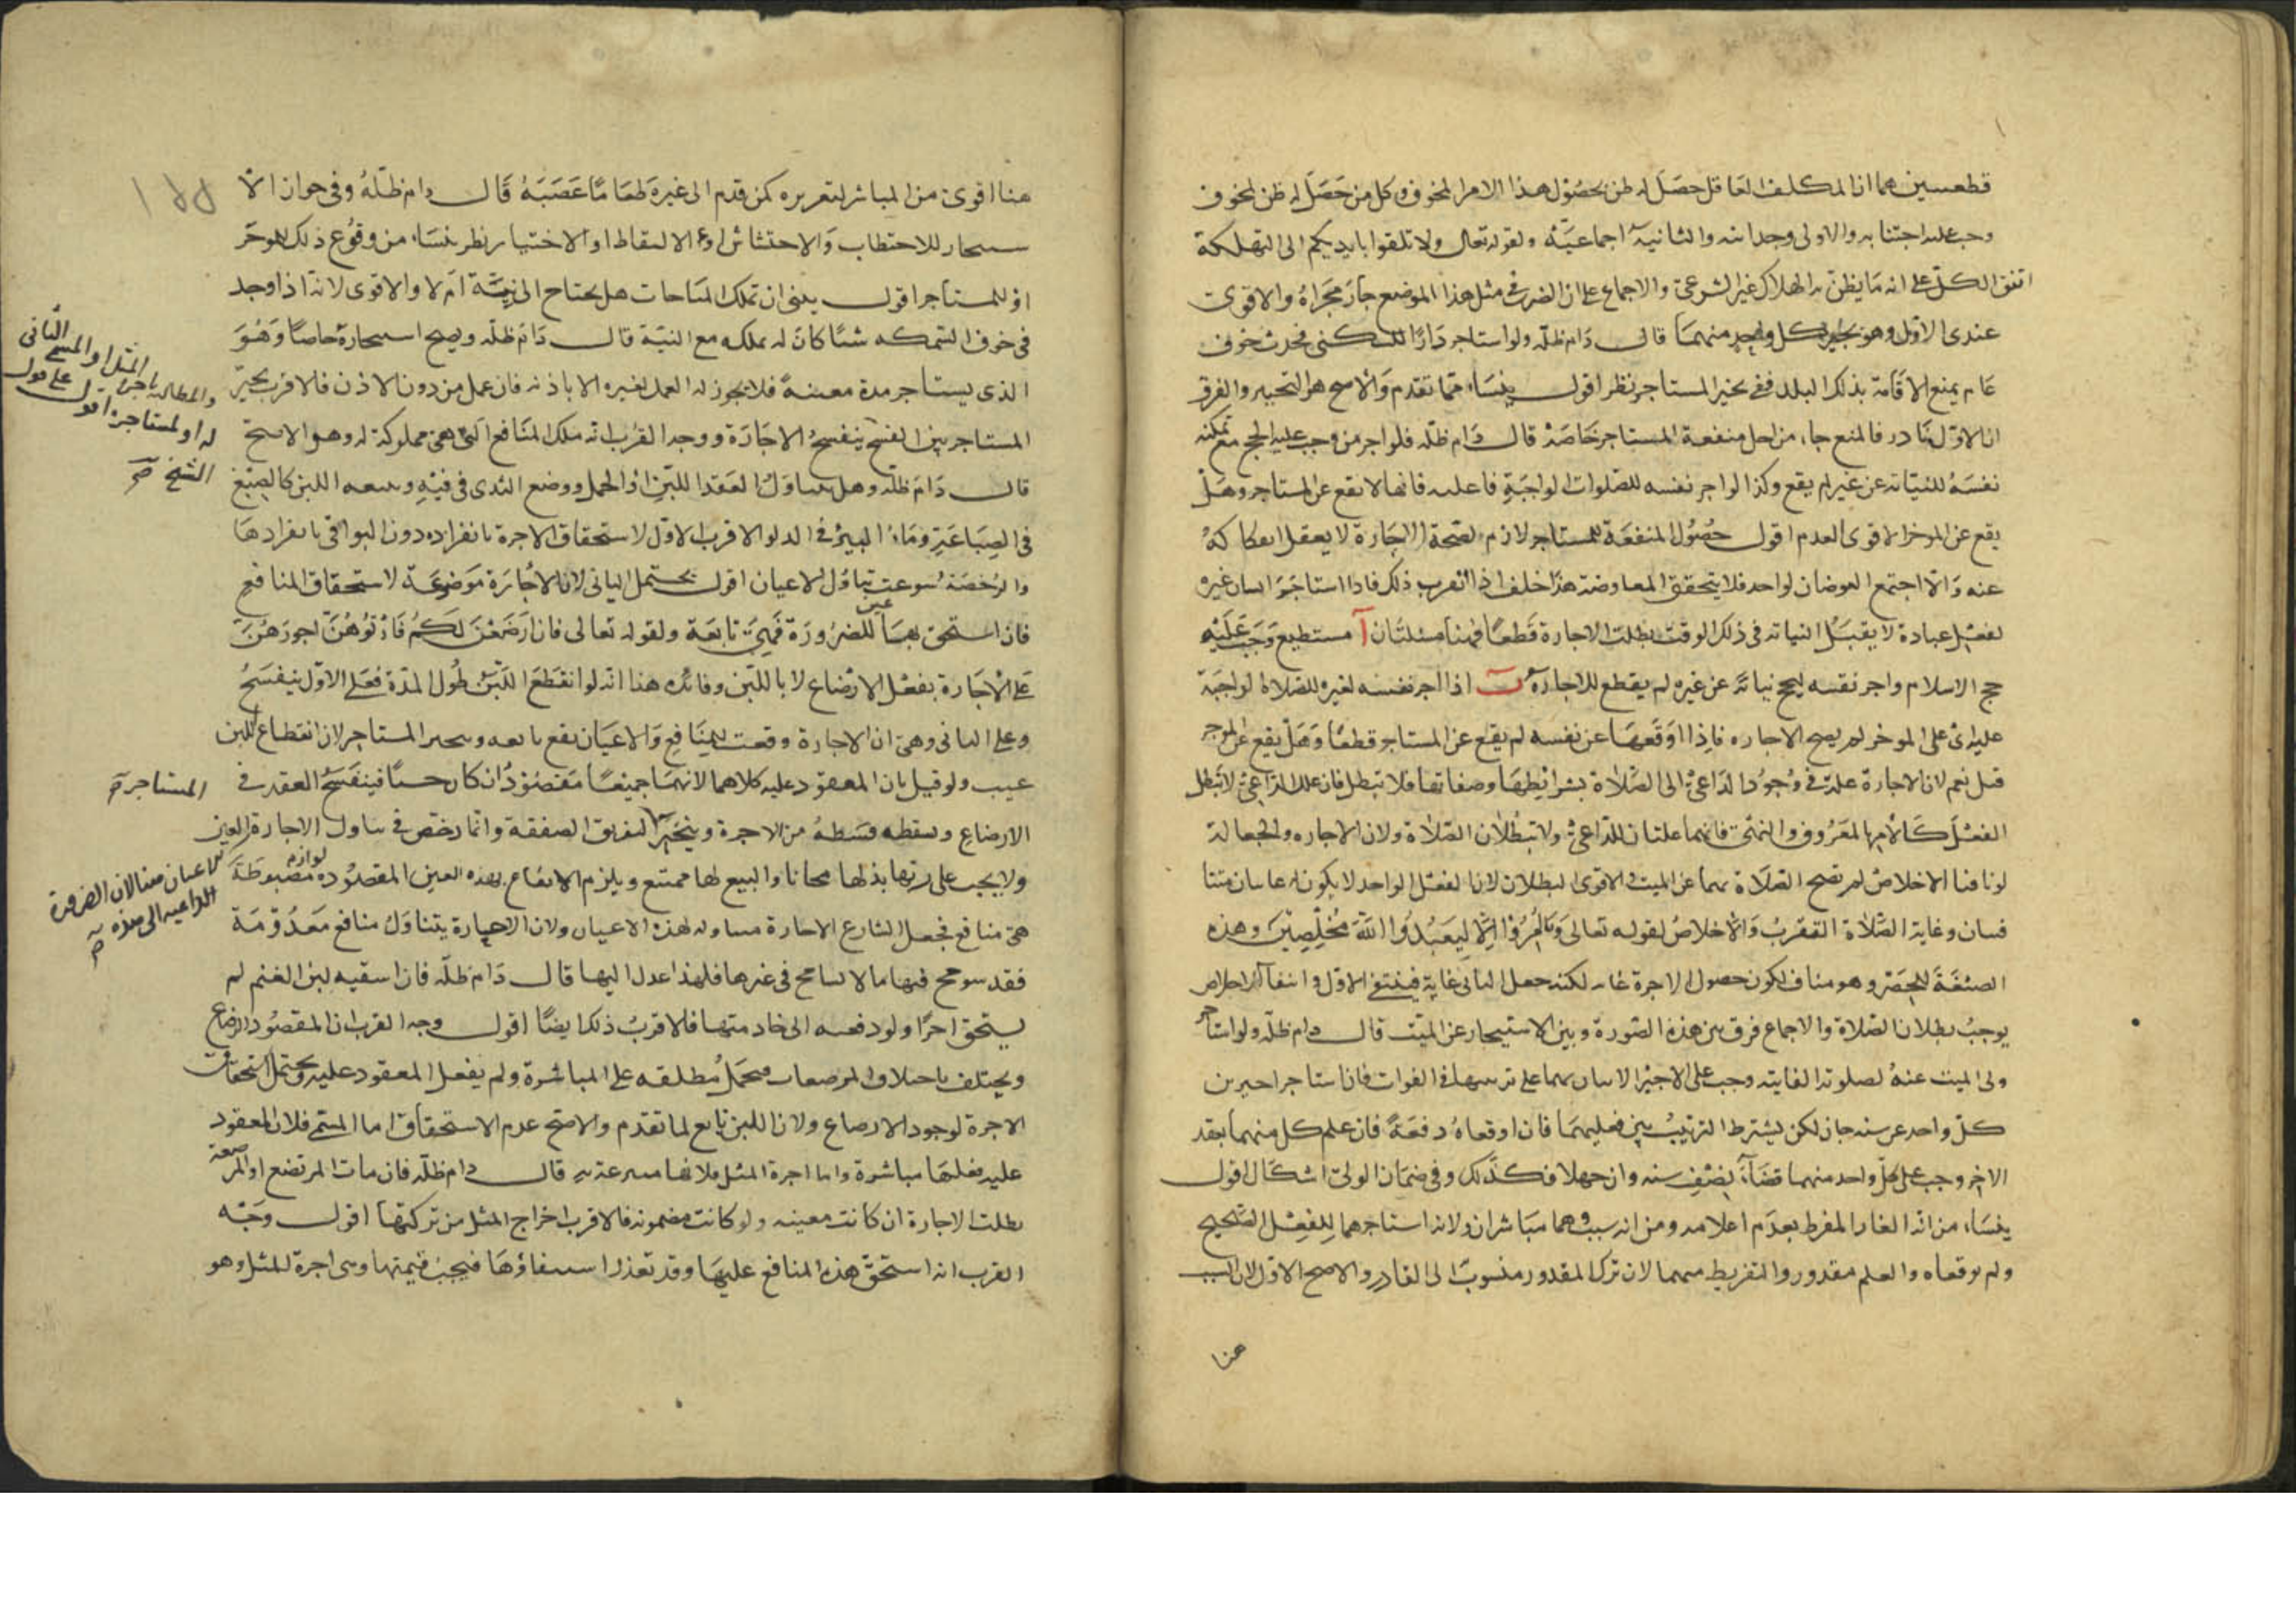 قطعيتين هما ان المكلف العاقل حصل له ظن بحصول هذا الامر المخوف وكل من حصل له ظن المخوف
وجب عليه اجتنابه والاولى وجدانية والثانية اجماعية ولقوله تعالى ولا تلقوا بايديكم الى التهلكة
اتفق الكل على انه ما يظن به الهلاك غير الشرعي والاجماع على ان الضرر في مثل هذا الموضع جار مجراه والاقوى
عندى الاول وهو تخير كل واحد منهما قال دام ظله ولو استاجر دارا للسكنى فحدث خوف
عام يمنع الاقامة بذلك البلد ففى تخير المستاجر نظر اقول ينشاء مما تقدم والاصح هو التخيير والفرق
ان الاول نادر فالمنع جاء من اجل منفعة المستاجر خاصة قال دام ظله فلو اجر من وجب عليه الحج مع تمكنه
نفسه للنيابة عن غير لم يقع وكذا لو اجر نفسه للصلوات الواجبة فاعليه فانها لا تقع عن المستاجر وهل
يقع عن الموجر الاقوى العدم اقول حصول المنفعة للمستاجر لازم لصحة الاجارة لا يعقل انفكاكه
عنه والا اجتمع العوضان لواحد فلا يتحقق المعاوضة هذا خلف اذا تقرب ذلك فاذا استاجر انسان غيره
لفعل عبادة لا يقبل النيابة في ذلك الوقت بطلت الاجارة قطعا فهنا مسئلتان آ مستطيع وجب عليه
حج الاسلام واجر نفسه ليحج نيابة عن غيره لم يقطع للاجارة ب اذا اجر نفسه لغيره للصلاة الواجبة
عليه اى على الموجر لم يصح الاجاره فاذا اوقعها عن نفسه لم يقع عن المستاجر قطعا وهل يقع عن الموجر
قيل نعم لان الاجارة علة في وجود الداعى الى الصلاة بشرائطها وصفاتها فلا تبطل فان علل الداعى لا تبطل
الفعل كالامر بالمعروف والنهى فانهما علتان للداعى ولا تبطلان الصلاة ولان الاجاره والجعالة
لو نافتا الاخلاص لم تصح الصلاة بهما عن الميت والاقوى البطلان لان الفعل الواحد لا يكون له غايتان
وغاية الصلاة التقرب والاخلاص لقوله تعالى وما امروا الا ليعبدوا الله مخلصين وهذه
الصيغة للحصر وهو مناف لكون حصول الاجرة غاية لكنه جعل الثانى غاية فينتفى الاول وانتفاء الاخلاص
يوجب بطلان الصلاة والاجماع فرق بين هذه الصورة وبين الاستيجار عن الميت قال دام ظله ولو استاجر
ولى الميت عنه لصلوته الفايتة وجب على الاجير الاتيان بهما على ترتيبها في الفوات فان استاجر اجيرين
كل واحد عن سنه جاز لكن يشترط الترتيب بين فعليهما فان اوقعاه دفعة فان علم كل منهما بعقد
الاخر وجب على كل واحد منهما قضاء نصف سنه وان جهلا فكذلك وفى ضمان الولى اشكال اقول
ينشاء من انه الغار المفرط بعدم اعلامه ومن انه سبب وهما مباشران ولانه استاجرهما للفعل الصحيح
ولم يوقعاه والعلم مقدور والتفريط منهما لان ترك المقدور منسوب الى القادر والاصح الاول لان السبب
هنا
هنا اقوى من المباشر لتغريره كمن قدم الى غيره طعاما غصبه قال دام ظله وفى جواز
للاحتطاب والاحتشاش او الالتقاط او الاختيار نظر ينشاء من وقوع ذلك للموجر
او للمستاجر اقول يعنى ان تملك المباحات هل يحتاج الى نية ام لا والاقوى لانه اذا وجد
فى جوف السمكه شيئا كان له يملكه مع النية قال دام ظله ويصح استيجارة خاصا وهو
الذى يستاجر مدة معينة فلا يجوز له العمل لغيره الا باذنه فان عمل من دون الاذن فالاقرب تخير
المستاجر بين الفسخ ينفسخ الاجارة ووجه القرب انه ملك المنافع التى هى مملوكة له وهو الاصح
والمطالبه باجرة المثل او المسمى الثانى
له او لمستاجره اقول على قول
الشيخ صح
قال دام ظله وهل يتناول العقد اللبن او الحمل ووضع الثدى فى فيه وتبعه اللبن كالصبغ
فى الصباغة وماء البير في الدلو الاقرب الاول لاستحقاق الاجرة بانفراده دون البواقى بانفرادها
والرخصة سوغت تناول الاعيان اقول يحتمل الثانى لان الاجارة موضوعة لاستحقاق المنافع
فان استحق بها عين للضرورة فهى تابعة ولقوله تعالى فان ارضعن لكم فاتوهن اجورهن
على الاجارة بفعل الارضاع لا باللبن وفائدة هنا انه لو انقطع اللبن طول المدة فعلى الاول ينفسخ
وعلى الثانى وهى ان الاجارة وقعت للمنافع والاعيان تقع تابعه وتخير المستاجر لان انقطاع اللبن
عيب ولو قيل بان المعقود عليه كلاهما لانهما جميعا مقصودان كان حسنا فينفسخ العقد فى
الارضاع ويسقط قسطه من الاجرة ويتخير لتفريق الصفقة وانما رخص في تناول الاجارة العين
المستاجر صح
ولا يجب على ربها بذلها مجانا والبيع لها ممتنع ويلزم الانتفاع بهذه العين المقصوده لوازم مضبوطة
للاعيان هنا لان الضرورة
الداعية الى هذه صح
هى منافع فجعل الشارع الاجارة متناوله لهذه الاعيان ولان الاجارة يتناول منافع معدومة
فقد سومح فيها ما لا يسامح فى غيرها فلهذا عدل اليها قال دام ظله فان اسقيه لبن الغنم لم
يستحق اجرا ولو دفعه الى خادمتها فالاقرب ذلك ايضا اقول وجه القرب ان المقصود الرضاع
ويختلف باختلاف المرضعات فيحمل مطلقه على المباشرة ولم يفعل المعقود عليه ويحتمل استحقاق
الاجرة لوجود الارضاع ولان اللبن تابع لما تقدم والاصح عدم الاستحقاق اما المسمى فلان المعقود
عليه فعلها مباشرة واما اجرة المثل فلانها متبرعة به قال دام ظله فان مات المرتضع او المرضعة
بطلت الاجارة ان كانت معينه ولو كانت مضمونه فالاقرب اخراج المثل من تركتها اقول وجه
القرب انه استحق هذه المنافع عليها وقد تعذر استيفاؤها فيجب قيمتها وهى اجرة المثل وهو